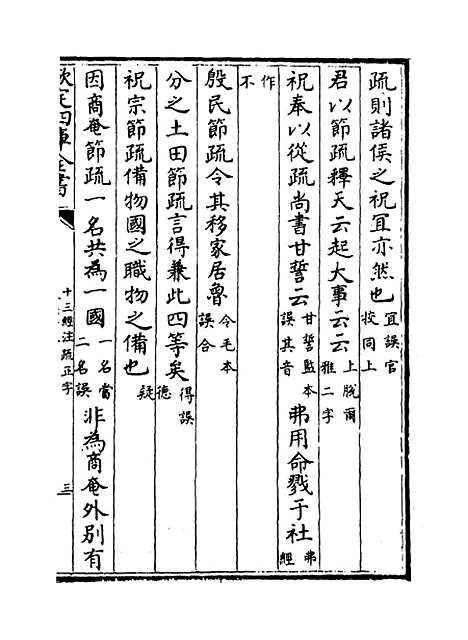 疏則諸侯之祝宜亦然也宜誤官挍同上
君以節疏釋天云起大事云云上脫爾雅二字
祝奉以從疏尚書甘誓云甘誓監本誤其音弗用命戮于社弗經
作不
殷民節疏令其移家居魯令毛本誤合
分之土田節疏言得兼此四等矣得誤德
祝宗節疏備物國之職物之備也疑
因商奄節疏一名共為一國一名當二名誤非為商奄外别有
欽定四庫全書
十三經注疏正字
三